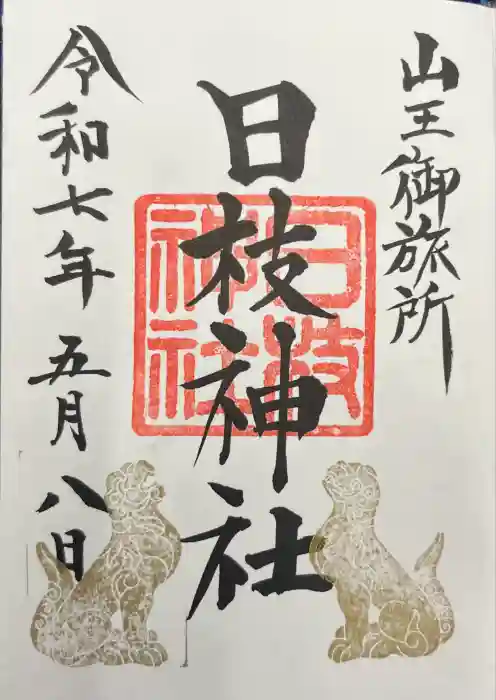 山王御旅所
日枝神社
日枝
神社
令和七年五月八日